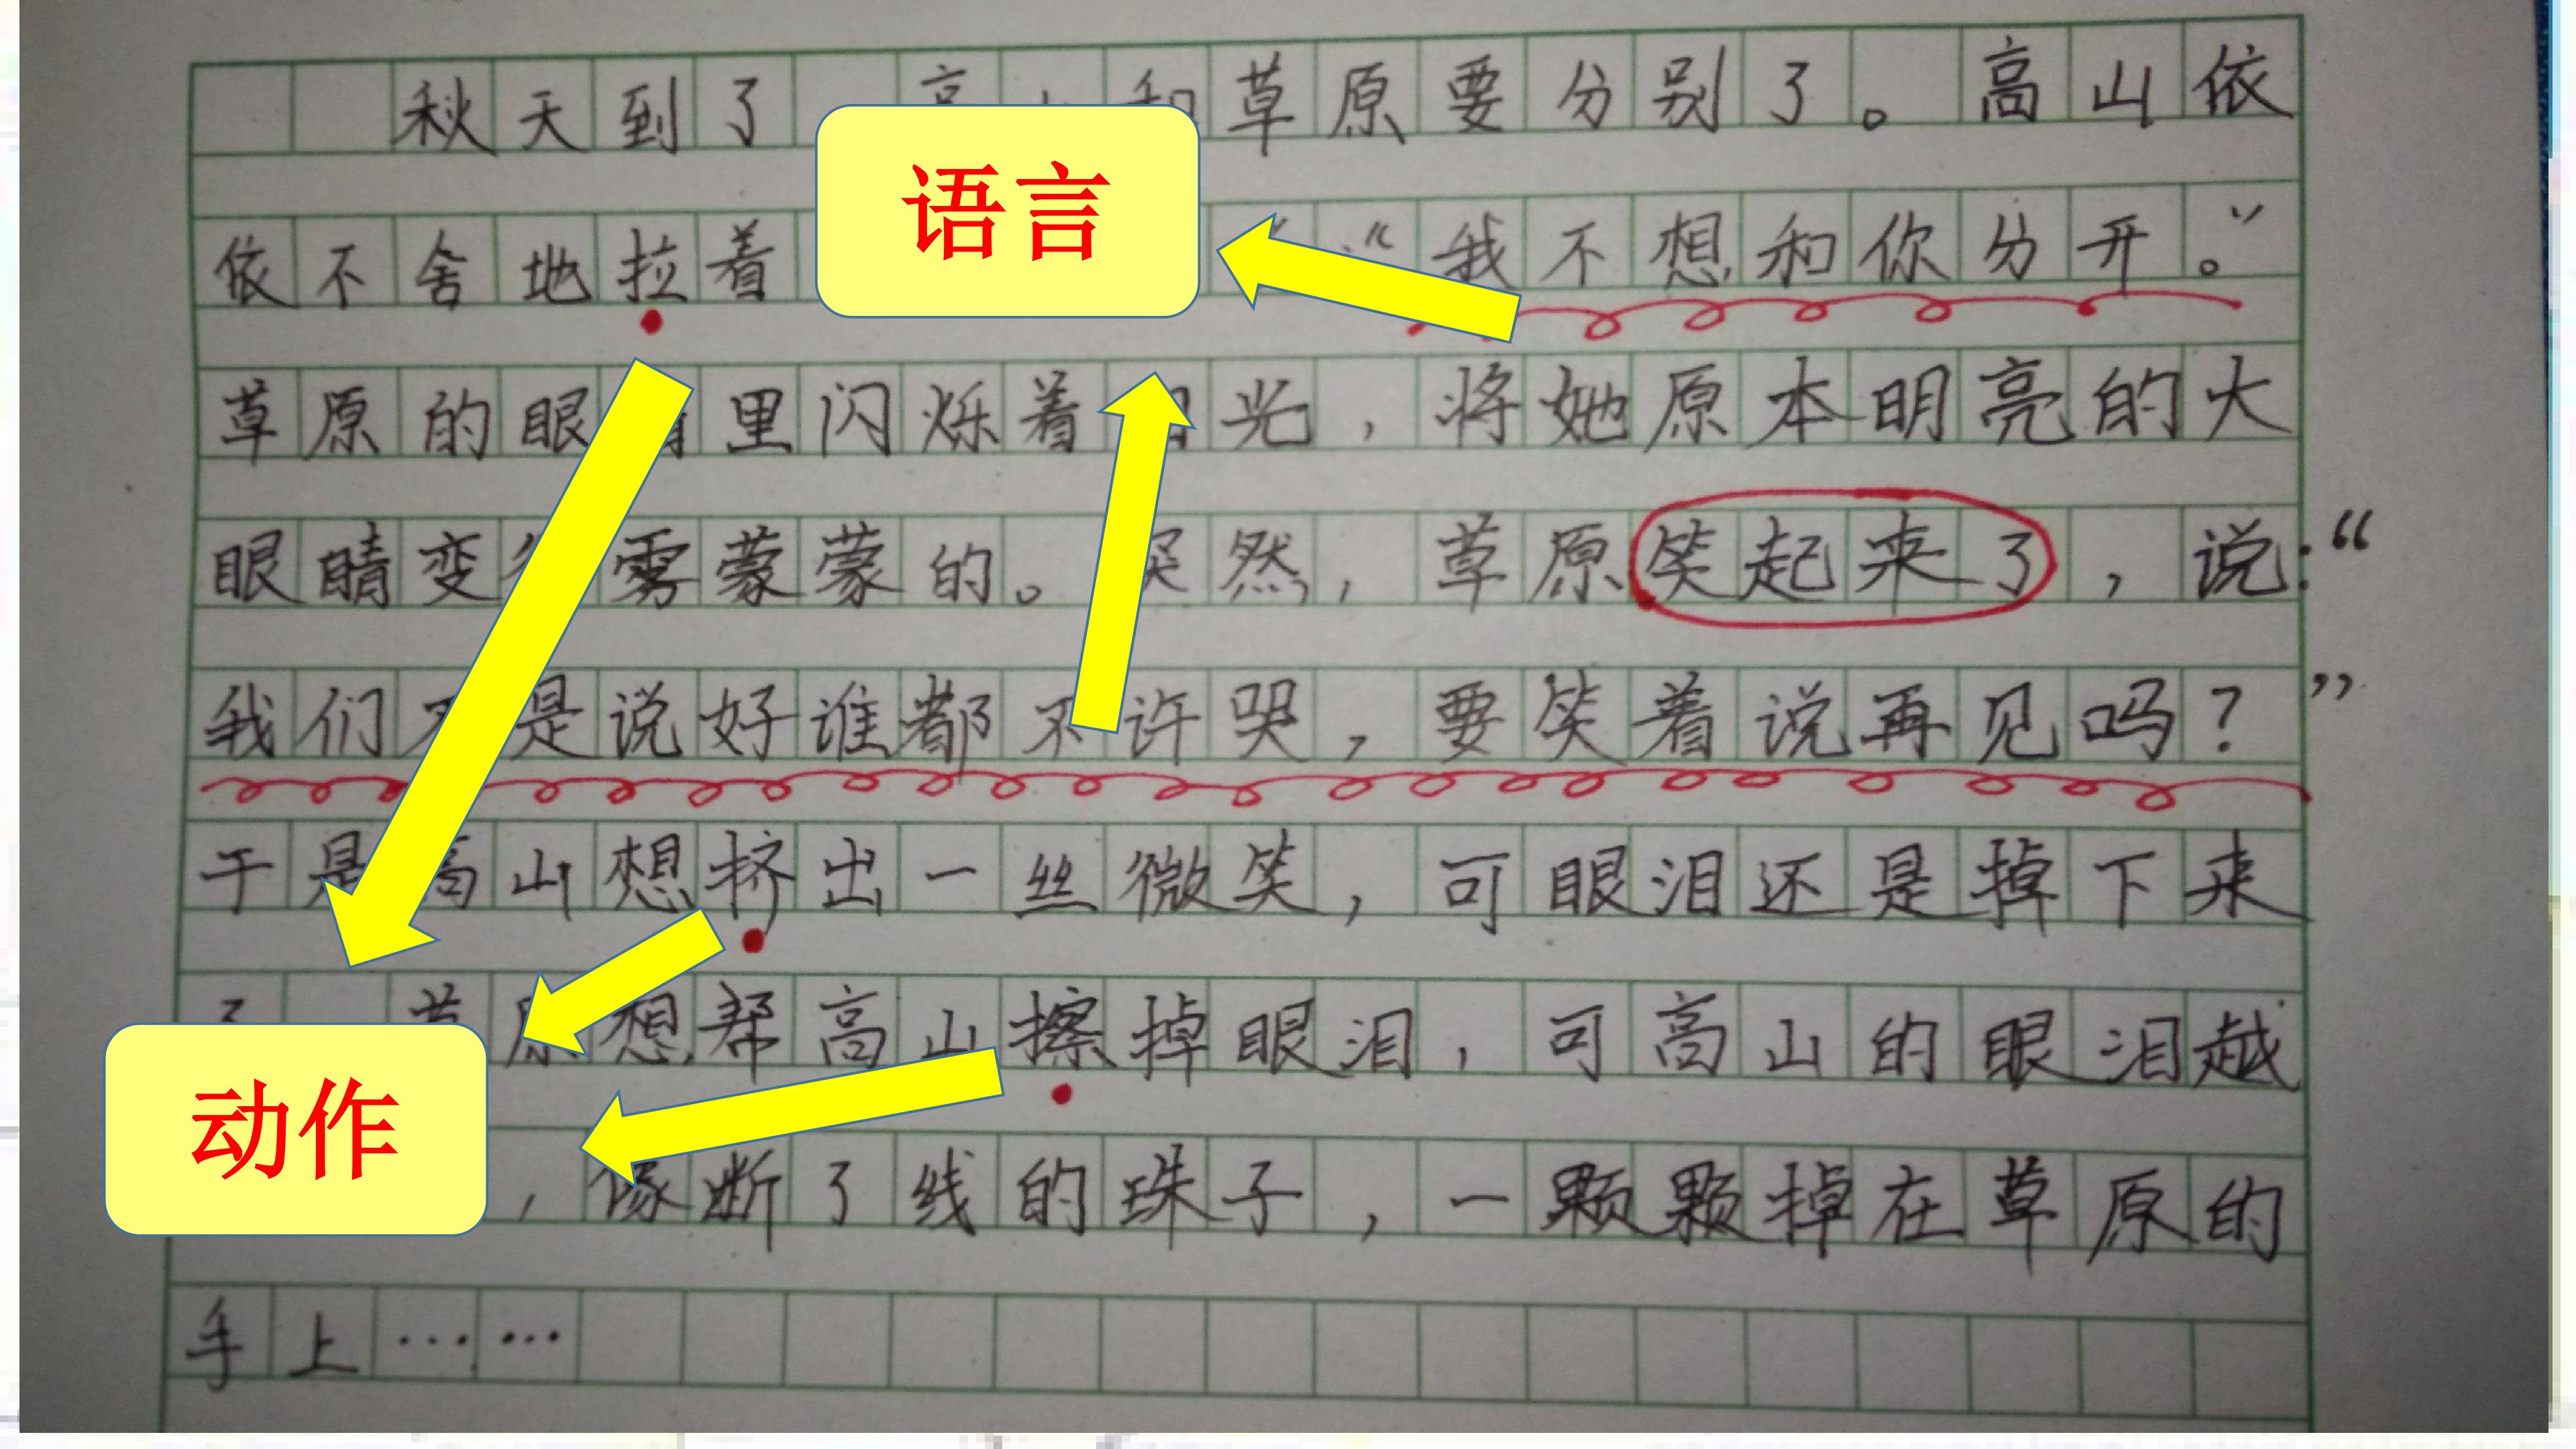 秋天到了 高 和草原要分别了。高山依
语言
依不舍地拉着 “我不想和你分开。”
草原的眼 里闪烁着 光，将她原本明亮的大
眼睛变 雾蒙蒙的。突然，草原笑起来了，说：“
我们不是说好谁都不许哭，要笑着说再见吗？”
于是高山想挤出一丝微笑，可眼泪还是掉下来
了 草原想帮高山擦掉眼泪，可高山的眼泪越
动作
，像断了线的珠子，一颗颗掉在草原的
手上……